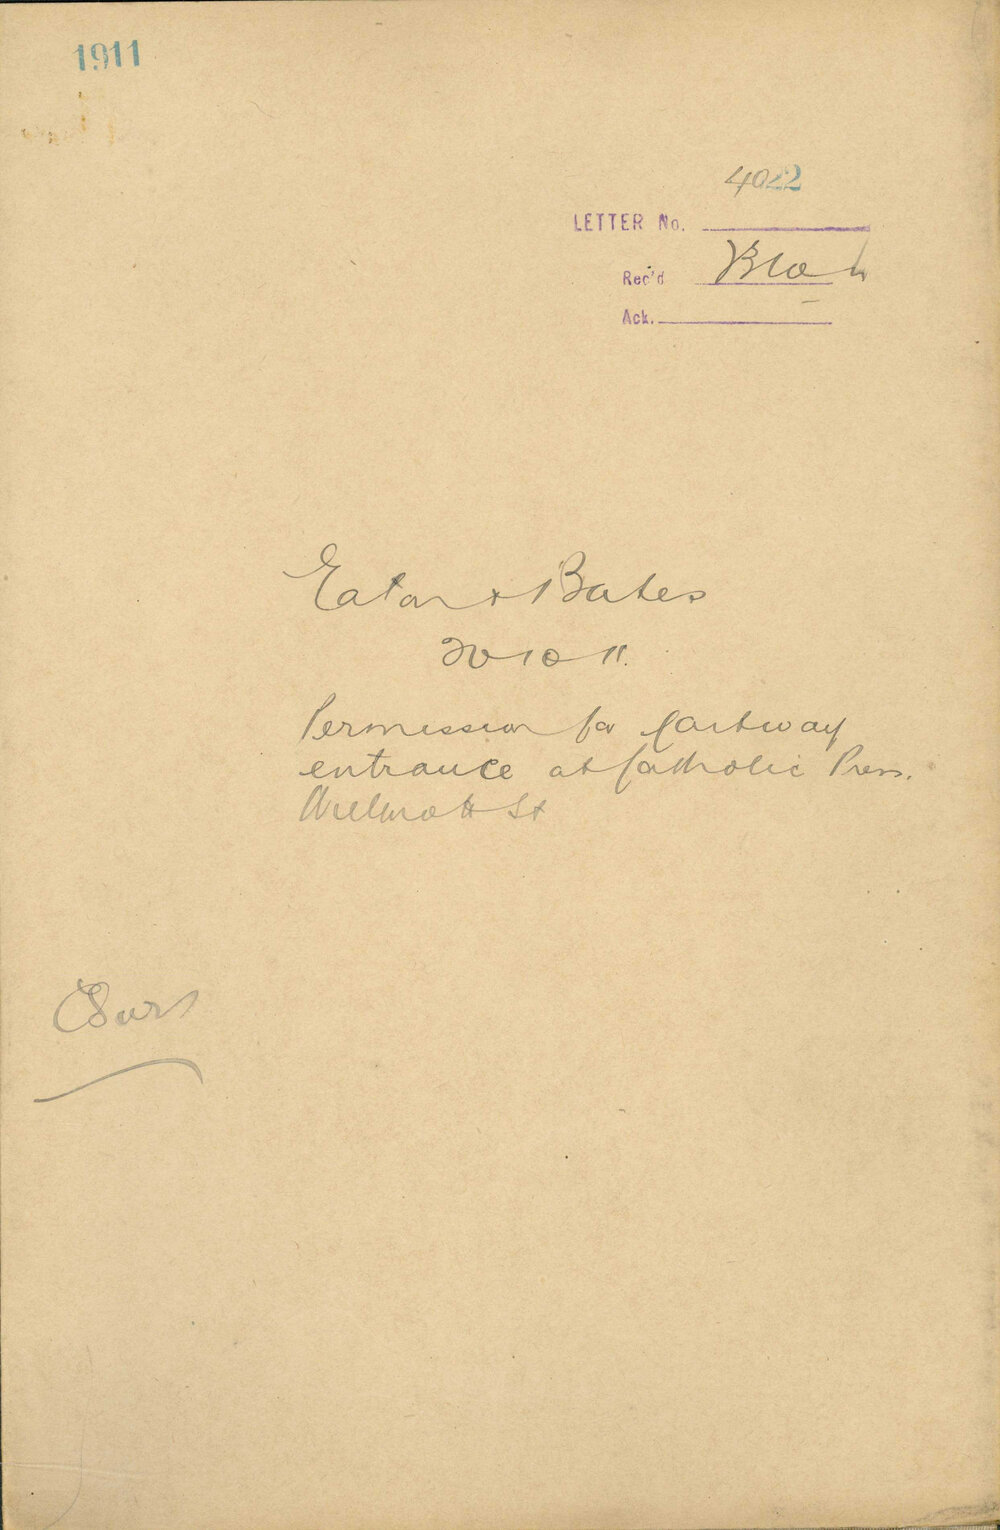 1911
4022
LETTER No.
Rec'd
Ack.
Eaton & Bates
20 10 11.
Permission for Cartway
entrance at Catholic Press.
Wilmott St